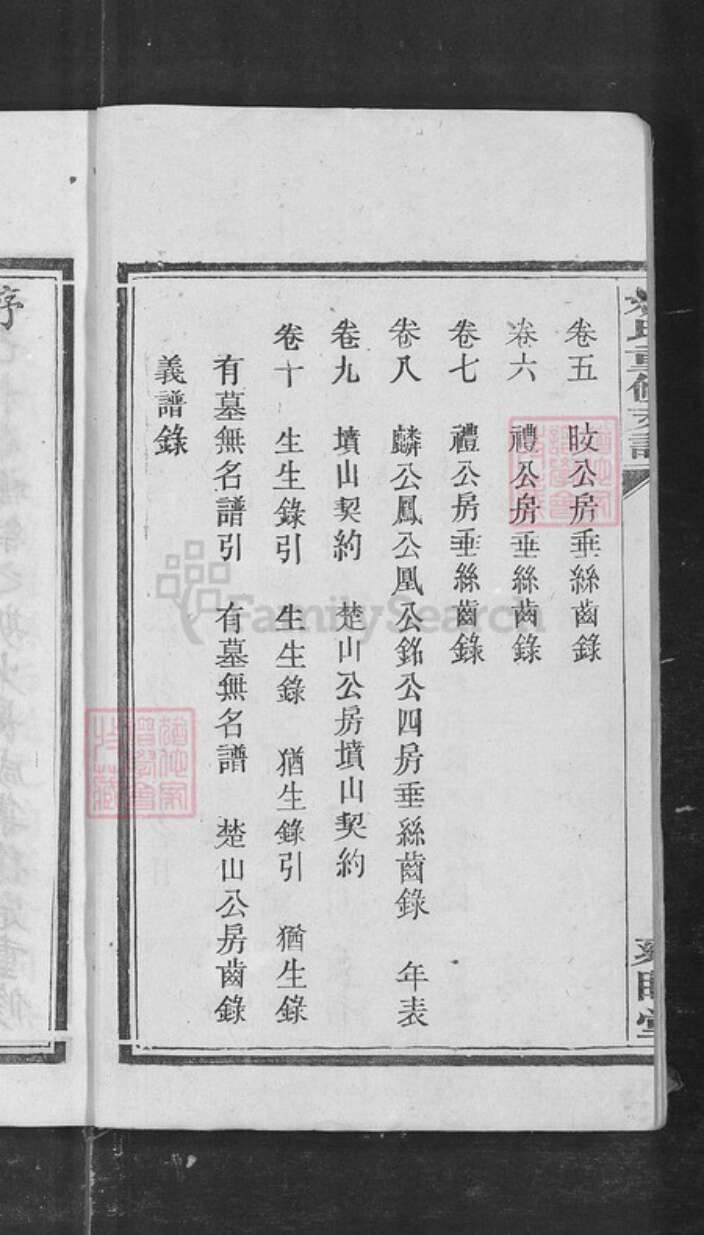 卷五　旼公房垂絲齒錄
卷六　禮公房垂絲齒錄
卷七　禮公房垂絲齒錄
卷八　麟公鳳公凰公銘公四房垂絲齒錄　年表
卷九　墳山契約　楚山公房墳山契約
卷十　生生錄引　生生錄　猶生錄引　猶生錄
有墓無名譜引　有墓無名譜　楚山公房齒錄
義譜錄
序
FamilySearch